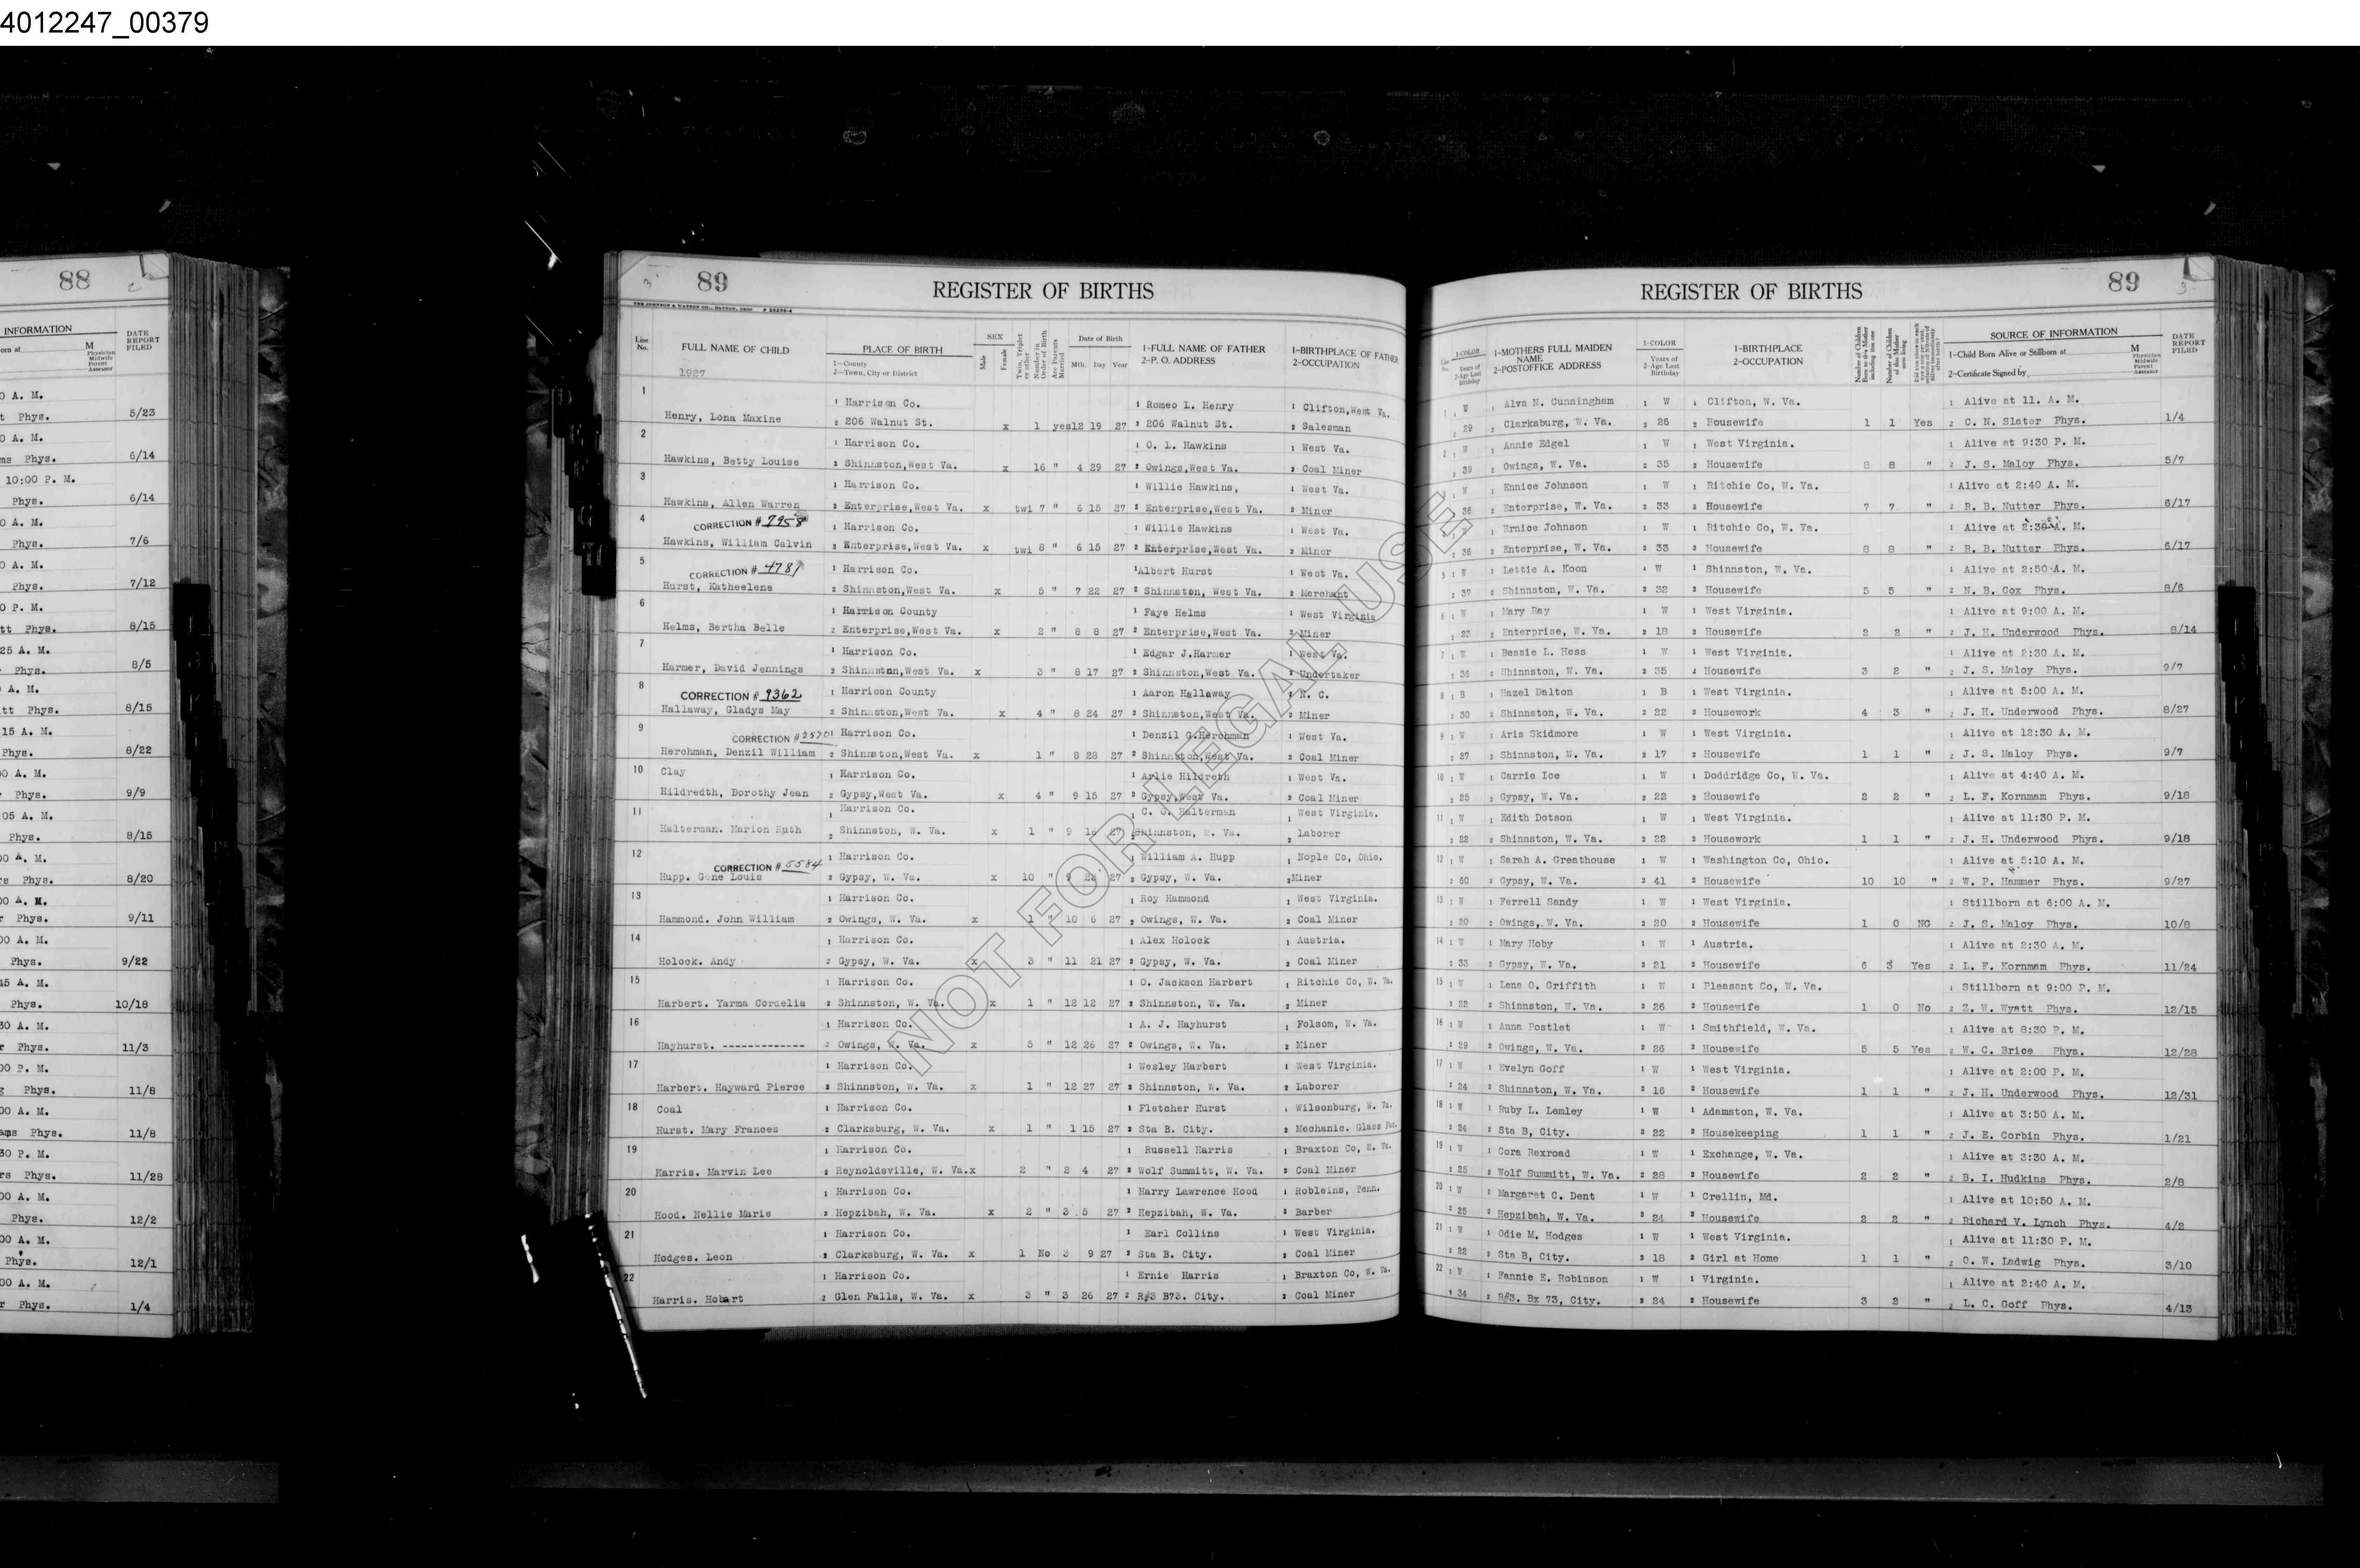 4012247_00379
88
2
INFORMATION
DATE REPORT FILED
orn at M
Physician Midwife Parent Assessor
0 A. M.
t Phys. 5/23
0 A. M.
ms Phys. 6/14
10:00 P. M.
Phys. 6/14
0 A. M.
Phys. 7/6
0 A. M.
Phys. 7/12
0 P. M.
tt Phys. 8/15
25 A. M.
r Phys. 8/5
A. M.
tt Phys. 8/15
15 A. M.
Phys. 8/22
00 A. M.
r Phys. 9/9
05 A. M.
Phys. 8/15
00 A. M.
rs Phys. 8/20
00 A. M.
r Phys. 9/11
00 A. M.
Phys. 9/22
45 A. M.
Phys. 10/18
30 A. M.
r Phys. 11/3
00 P. M.
g Phys. 11/8
00 A. M.
ams Phys. 11/8
30 P. M.
rs Phys. 11/28
00 A. M.
Phys. 12/2
00 A. M.
Phys. 12/1
00 A. M.
r Phys. 1/4
3 89 REGISTER OF BIRTHS
REGISTER OF BIRTHS 89 3
THE JOHNSON & WATSON CO., DAYTON, OHIO
Line No. FULL NAME OF CHILD PLACE OF BIRTH 1—County 2—Town, City or District SEX Male Female Twin, Triplet or other Number in Order of Birth Are Parents Married Date of Birth Mth. Day Year 1-FULL NAME OF FATHER 2-P. O. ADDRESS 1-BIRTHPLACE OF FATHER 2-OCCUPATION
Line No. 1-COLOR 2-Age Last Birthday Years of 1-MOTHERS FULL MAIDEN NAME 2-POSTOFFICE ADDRESS 1-COLOR Years of 2-Age Last Birthday 1-BIRTHPLACE 2-OCCUPATION Number of Children Born to this Mother including this one Number of Children of this Mother now living SOURCE OF INFORMATION 1-Child Born Alive or Stillborn at M 2-Certificate Signed by Physician Midwife Parent Assessor DATE REPORT FILED
1927
1 1 Harrison Co. 1 Romeo L. Henry 1 Clifton,West Va. 1 1 W 1 Alva N. Cunningham 1 W 1 Clifton, W. Va. 1 Alive at 11. A. M.
Henry, Lona Maxine 2 206 Walnut St. x 1 yes 12 19 27 2 206 Walnut St. 2 Salesman 2 29 2 Clarksburg, W. Va. 2 26 2 Housewife 1 1 Yes 2 C. N. Slater Phys. 1/4
2 1 Harrison Co. 1 O. L. Hawkins 1 West Va. 2 1 W 1 Annie Edgel 1 W 1 West Virginia. 1 Alive at 9:30 P. M.
Hawkins, Betty Louise 2 Shinnston,West Va. x 16 " 4 29 27 2 Owings,West Va. 2 Coal Miner 2 39 2 Owings, W. Va. 2 35 2 Housewife 8 8 " 2 J. S. Maloy Phys. 5/7
3 1 Harrison Co. 1 Willie Hawkins, 1 West Va. 1 W 1 Ennice Johnson 1 W 1 Ritchie Co, W. Va. 1 Alive at 2:40 A. M.
Hawkins, Allen Warren 2 Enterprise,West Va. x twi 7 " 6 15 27 2 Enterprise,West Va. 2 Miner 2 36 2 Enterprise, W. Va. 2 33 2 Housewife 7 7 " 2 R. B. Nutter Phys. 6/17
4 CORRECTION # 7958 1 Harrison Co. 1 Willie Hawkins 1 West Va. 1 Ernice Johnson 1 W 1 Ritchie Co, W. Va. 1 Alive at A. M.
Hawkins, William Calvin 2 Enterprise,West Va. x twi 8 " 6 15 27 2 Enterprise,West Va. 2 Miner 2 36 2 Enterprise, W. Va. 2 33 2 Housewife 8 8 " 2 R. B. Nutter Phys. 6/17
5 CORRECTION # 4781 1 Harrison Co. 1 Albert Hurst 1 West Va. 5 1 W 1 Lettie A. Koon 1 W 1 Shinnston, W. Va. 1 Alive at 2:50 A. M.
Hurst, Katheelene 2 Shinnston,West Va. x 5 " 7 22 27 2 Shinnston, West Va. 2 Merchant 2 37 2 Shinnston, W. Va. 2 32 2 Housewife 5 5 " 2 N. B. Cox Phys. 8/6
6 1 Harrison County 1 Faye Helms 1 West Virginia 6 1 W 1 Mary Day 1 W 1 West Virginia. 1 Alive at 9:00 A. M.
Helms, Bertha Belle 2 Enterprise,West Va. x 2 " 8 8 27 2 Enterprise,West Va. 2 Miner 2 23 2 Enterprise, W. Va. 2 18 2 Housewife 2 2 " 2 J. H. Underwood Phys. 8/14
7 1 Harrison Co. 1 Edgar J.Harmer 1 West Va. 7 1 W 1 Bessie L. Hess 1 W 1 West Virginia. 1 Alive at 2:30 A. M.
Harmer, David Jennings 2 Shinnston,West Va. x 3 " 8 17 27 2 Shinnston,West Va. 2 Undertaker 2 36 2 Shinnston, W. Va. 2 35 2 Housewife 3 2 " 2 J. S. Maloy Phys. 9/7
8 CORRECTION # 9362 1 Harrison County 1 Aaron Hallaway 1 N. C. 8 1 B 1 Hazel Dalton 1 B 1 West Virginia. 1 Alive at 5:00 A. M.
Hallaway, Gladys May 2 Shinnston,West Va. x 4 " 8 24 27 2 Shinnston,West Va. 2 Miner 2 30 2 Shinnston, W. Va. 2 22 2 Housework 4 3 " 2 J. H. Underwood Phys. 8/27
9 CORRECTION # 2570 1 Harrison Co. 1 Denzil G.Herchman 1 West Va. 9 1 W 1 Aris Skidmore 1 W 1 West Virginia. 1 Alive at 12:30 A. M.
Herchman, Denzil William 2 Shinnston,West Va. x 1 " 8 28 27 2 Shinnston,West Va. 2 Coal Miner 2 27 2 Shinnston, W. Va. 2 17 2 Housewife 1 1 " 2 J. S. Maloy Phys. 9/7
10 Clay 1 Harrison Co. 1 Arlie Hildreth 1 West Va. 10 1 W 1 Carrie Ice 1 W 1 Doddridge Co, W. Va. 1 Alive at 4:40 A. M.
Hildredth, Dorothy Jean 2 Gypsy,West Va. x 4 " 9 15 27 2 Gypsy,West Va. 2 Coal Miner 2 25 2 Gypsy, W. Va. 2 22 2 Housewife 2 2 " 2 L. F. Kornmam Phys. 9/18
11 1 Harrison Co. 1 C. O. Halterman 1 West Virginia. 11 1 W 1 Edith Dotson 1 W 1 West Virginia. 1 Alive at 11:30 P. M.
Halterman. Marion Ruth 2 Shinnston, W. Va. x 1 " 9 16 27 2 Shinnston, W. Va. 2 Laborer 2 22 2 Shinnston, W. Va. 2 22 2 Housework 1 1 " 2 J. H. Underwood Phys. 9/18
12 CORRECTION # 5584 1 Harrison Co. 1 William A. Hupp 1 Nople Co, Ohio. 12 1 W 1 Sarah A. Greathouse 1 W 1 Washington Co, Ohio. 1 Alive at 5:10 A. M.
Hupp. Gene Louis 2 Gypsy, W. Va. x 10 " 9 22 27 2 Gypsy, W. Va. 2 Miner 2 60 2 Gypsy, W. Va. 2 41 2 Housewife 10 10 " 2 W. P. Hammer Phys. 9/27
13 1 Harrison Co. 1 Roy Hammond 1 West Virginia. 13 1 W 1 Ferrell Sandy 1 W 1 West Virginia. 1 Stillborn at 6:00 A. M.
Hammond. John William 2 Owings, W. Va. x 1 " 10 6 27 2 Owings, W. Va. 2 Coal Miner 2 20 2 Owings, W. Va. 2 20 2 Housewife 1 0 NG 2 J. S. Maloy Phys. 10/8
14 1 Harrison Co. 1 Alex Holock 1 Austria. 14 1 W 1 Mary Hoby 1 W 1 Austria. 1 Alive at 2:30 A. M.
Holock. Andy 2 Gypsy, W. Va. x 3 " 11 21 27 2 Gypsy, W. Va. 2 Coal Miner 2 33 2 Gypsy, W. Va. 2 21 2 Housewife 6 3 Yes 2 L. F. Kornmam Phys. 11/24
15 1 Harrison Co. 1 O. Jackson Harbert 1 Ritchie Co, W. Va. 15 1 W 1 Lena O. Griffith 1 W 1 Pleasant Co, W. Va. 1 Stillborn at 9:00 P. M.
Harbert. Yarma Cordelia 2 Shinnston, W. Va. x 1 " 12 12 27 2 Shinnston, W. Va. 2 Miner 2 22 2 Shinnston, W. Va. 2 26 2 Housewife 1 0 No 2 Z. W. Wyatt Phys. 12/15
16 1 Harrison Co. 1 A. J. Hayhurst 1 Folsom, W. Va. 16 1 W 1 Anna Postlet 1 W 1 Smithfield, W. Va. 1 Alive at 8:30 P. M.
Hayhurst. ------------- 2 Owings, W. Va. x 5 " 12 26 27 2 Owings, W. Va. 2 Miner 2 29 2 Owings, W. Va. 2 26 2 Housewife 5 5 Yes 2 W. C. Brice Phys. 12/28
17 1 Harrison Co. 1 Wesley Harbert 1 West Virginia. 17 1 W 1 Evelyn Goff 1 W 1 West Virginia. 1 Alive at 2:00 P. M.
Harbert. Hayward Pierce 2 Shinnston, W. Va. x 1 " 12 27 27 2 Shinnston, W. Va. 2 Laborer 2 24 2 Shinnston, W. Va. 2 16 2 Housewife 1 1 " 2 J. H. Underwood Phys. 12/31
18 Coal 1 Harrison Co. 1 Fletcher Hurst 1 Wilsonburg, W. Va. 18 1 W 1 Ruby L. Lemley 1 W 1 Adamston, W. Va. 1 Alive at 3:50 A. M.
Hurst. Mary Frances 2 Clarksburg, W. Va. x 1 " 1 15 27 2 Sta B. City. 2 Mechanic. Glass Fac. 2 24 2 Sta B, City. 2 22 2 Housekeeping 1 1 " 2 J. E. Corbin Phys. 1/21
19 1 Harrison Co. 1 Russell Harris 1 Braxton Co, W. Va. 19 1 W 1 Cora Rexroad 1 W 1 Exchange, W. Va. 1 Alive at 3:30 A. M.
Harris. Marvin Lee 2 Reynoldsville, W. Va. x 2 " 2 4 27 2 Wolf Summitt, W. Va. 2 Coal Miner 2 25 2 Wolf Summitt, W. Va. 2 28 2 Housewife 2 2 " 2 B. I. Hudkins Phys. 2/8
20 1 Harrison Co. 1 Harry Lawrence Hood 1 Robleins, Tenn. 20 1 W 1 Margaret C. Dent 1 W 1 Crellin, Md. 1 Alive at 10:50 A. M.
Hood. Nellie Marie 2 Hepzibah, W. Va. x 2 " 3 5 27 2 Hepzibah, W. Va. 2 Barber 2 25 2 Hepzibah, W. Va. 2 24 2 Housewife 2 2 " 2 Richard V. Lynch Phys. 4/2
21 1 Harrison Co. 1 Earl Collins 1 West Virginia. 21 1 W 1 Odie M. Hodges 1 W 1 West Virginia. 1 Alive at 11:30 P. M.
Hodges. Leon 2 Clarksburg, W. Va. x 1 No 3 9 27 2 Sta B. City. 2 Coal Miner 2 22 2 Sta B, City. 2 18 2 Girl at Home 1 1 " 2 O. W. Ladwig Phys. 3/10
22 1 Harrison Co. 1 Ernie Harris 1 Braxton Co, W. Va. 22 1 W 1 Fannie E. Robinson 1 W 1 Virginia. 1 Alive at 2:40 A. M.
Harris. Hobart 2 Glen Falls, W. Va. x 3 " 3 26 27 2 R#3 B73. City. 2 Coal Miner 2 34 2 R#3. Bx 73, City. 2 24 2 Housewife 3 2 " 2 L. C. Goff Phys. 4/13
NOT FOR LEGAL USE